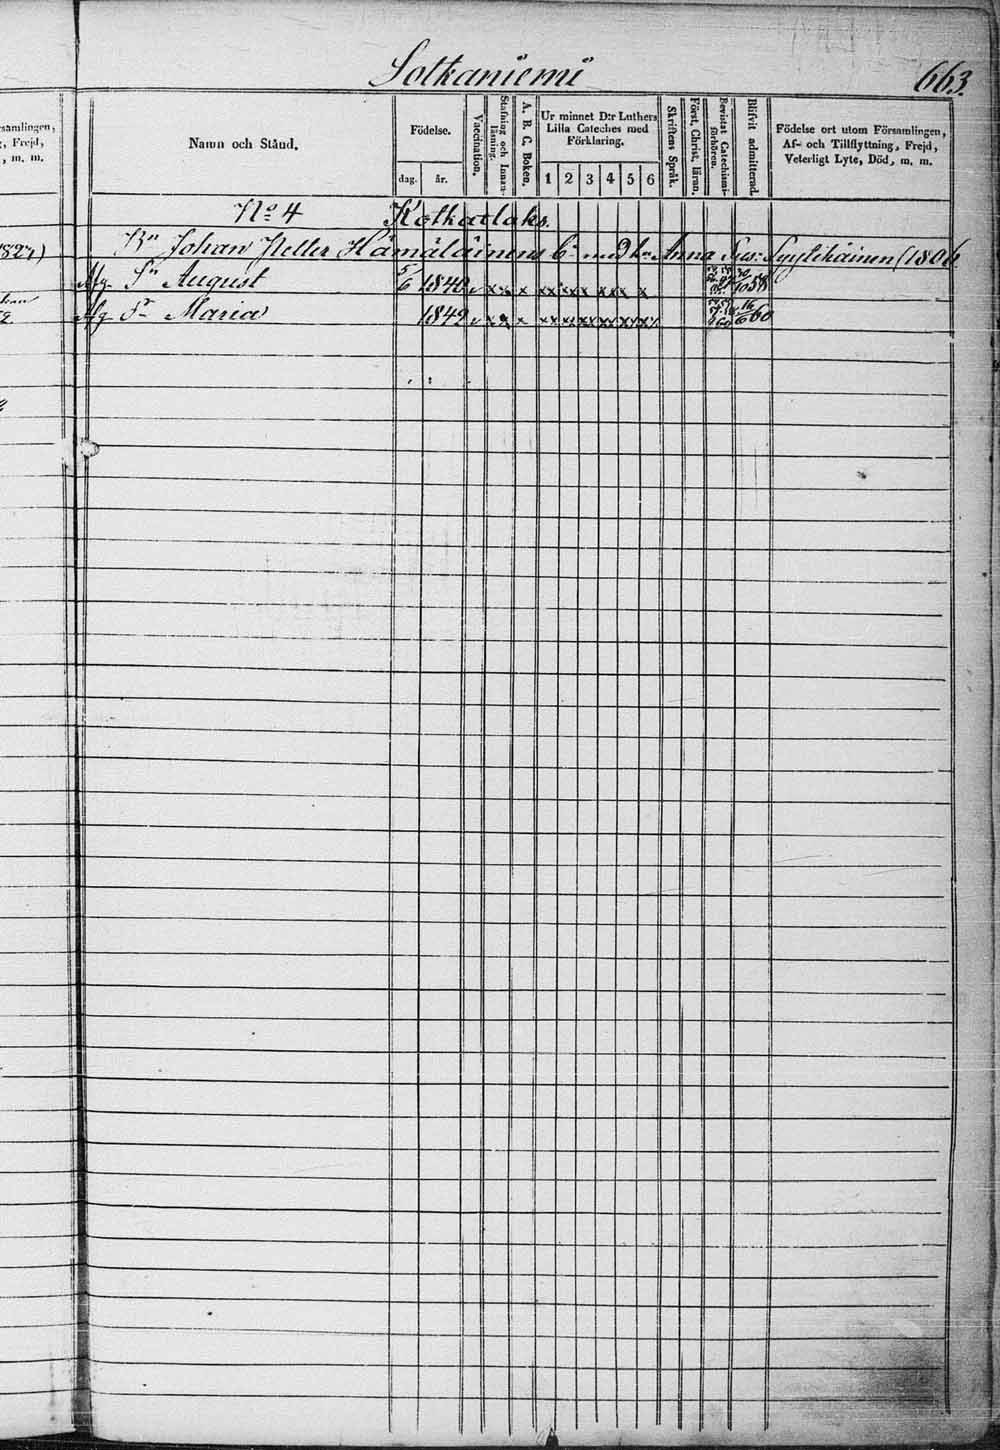 Sotkaniemi
663.
Namn och Stånd.
Födelse.
dag.
år.
Vaccination.
Stafning och Innanläsning.
A. B. C. Boken.
Ur minnet D:r Luthers
Lilla Cateches med
Förklaring.
1 2 3 4 5 6
Skriftens Språk.
Först. Christ. läran.
Bevistat Catechismi-
förhören.
Blifvit admitterad.
Födelse ort utom Församlingen,
Af- och Tillflyttning, Frejd,
Veterligt Lyte, Död, m. m.
No 4 Kotkadlaks.
Bn Johan Petter Hämäläinens b. med h. Anna Sus: Lyytikäinen (1806
Afg. Sn August 5/6 1840 v x x x xx xx xx xx xx x 30/10 58
Afg Dr Maria 1842 v x x x xx xx xx xx xx xx 16/6 60
samlingen,
Frejd,
, m. m.
1827)